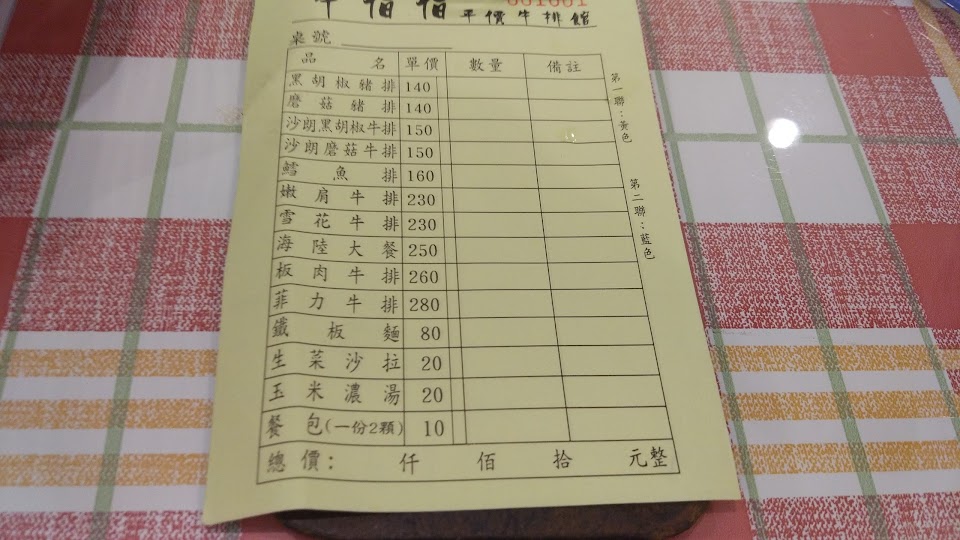 平價牛排館
桌號
品名 單價 數量 備註
黑胡椒豬排 140
磨菇豬排 140
沙朗黑胡椒牛排 150
沙朗磨菇牛排 150
鱈魚排 160
嫩肩牛排 230
雪花牛排 230
海陸大餐 250
板肉牛排 260
菲力牛排 280
鐵板麵 80
生菜沙拉 20
玉米濃湯 20
餐包(一份2顆) 10
總價: 仟 佰 拾 元整
第一聯:黃色
第二聯:藍色